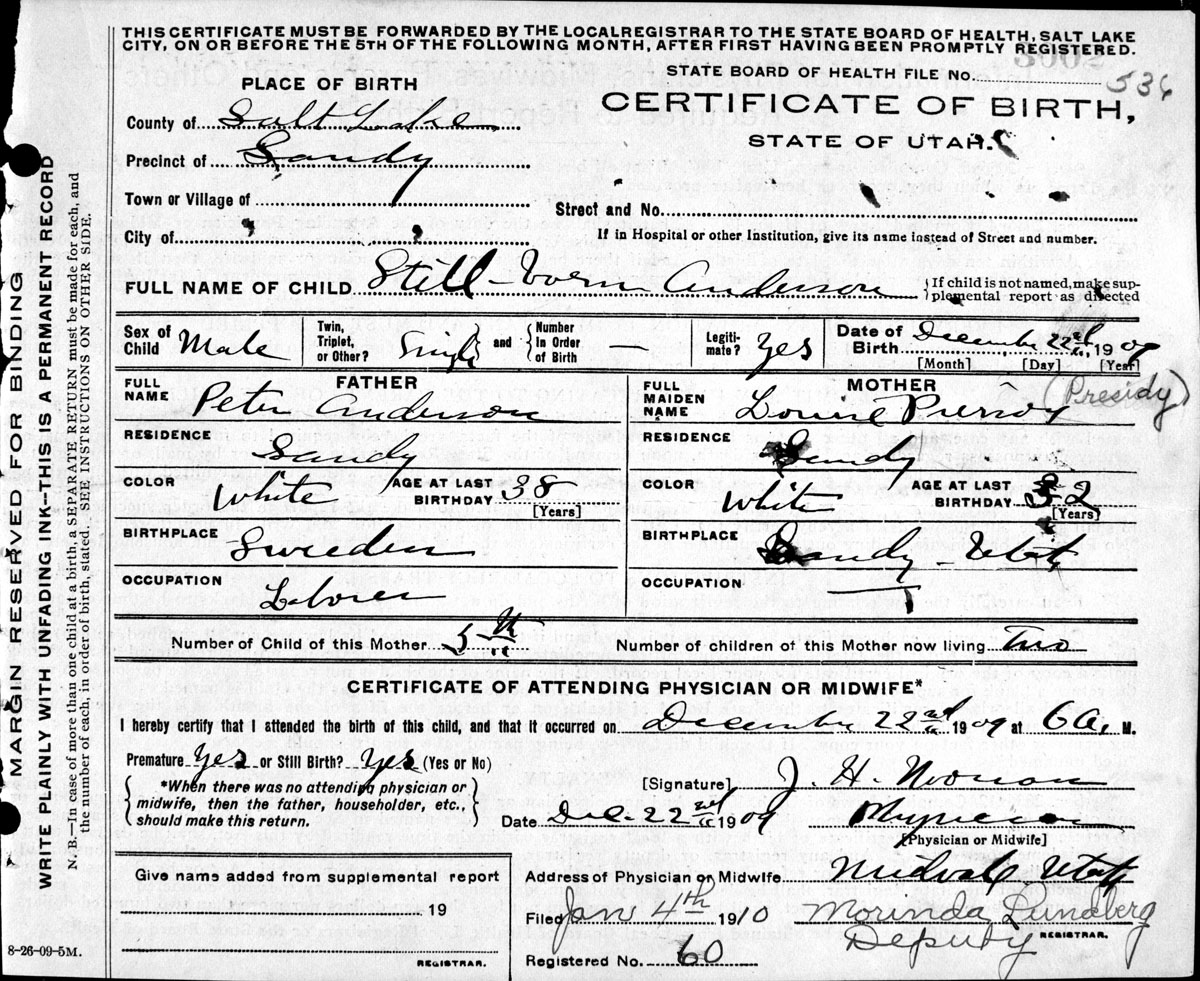 THIS CERTIFICATE MUST BE FORWARDED BY THE LOCALREGISTRAR TO THE STATE BOARD OF HEALTH, SALT LAKE
CITY, ON OR BEFORE THE 5TH OF THE FOLLOWING MONTH, AFTER FIRST HAVING BEEN PROMPTLY REGISTERED.
STATE BOARD OF HEALTH FILE No. 536
PLACE OF BIRTH
CERTIFICATE OF BIRTH,
STATE OF UTAH.
County of Salt Lake
Precinct of Sandy
Town or Village of
Street and No.
City of
If in Hospital or other Institution, give its name instead of Street and number.
FULL NAME OF CHILD Still-born Anderson
If child is not named, make sup-
plemental report as directed
Sex of Child Male
Twin, Triplet, or Other? Single and Number In Order of Birth —
Legiti-mate? Yes
Date of Birth December 22nd, 1909
[Month] [Day] [Year]
FATHER
FULL NAME Peter Anderson
RESIDENCE Sandy
COLOR White AGE AT LAST BIRTHDAY 38
[Years]
BIRTHPLACE Sweden
OCCUPATION Laborer
MOTHER
FULL MAIDEN NAME Louise (Presidy)
RESIDENCE Sandy
COLOR White AGE AT LAST BIRTHDAY 32
[Years]
BIRTHPLACE Sandy - Utah
OCCUPATION —
Number of Child of this Mother 5th
Number of children of this Mother now living Two
CERTIFICATE OF ATTENDING PHYSICIAN OR MIDWIFE*
I hereby certify that I attended the birth of this child, and that it occurred on December 22nd 1909 at 6 A. M.
Premature Yes or Still Birth? Yes (Yes or No)
*When there was no attending physician or
midwife, then the father, householder, etc.,
should make this return.
[Signature] J. H. Noonan
Date Dec. 22nd 1909 Physician
[Physician or Midwife]
Give name added from supplemental report
19
REGISTRAR.
Address of Physician or Midwife Midvale Utah
Filed Jan 4th 1910 Morinda Lundberg
Deputy REGISTRAR.
Registered No. 60
8-26-09-5M.
MARGIN RESERVED FOR BINDING
WRITE PLAINLY WITH UNFADING INK--THIS IS A PERMANENT RECORD
N. B.—In case of more than one child at a birth, a SEPARATE RETURN must be made for each, and
the number of each, in order of birth, stated. SEE INSTRUCTIONS ON OTHER SIDE.